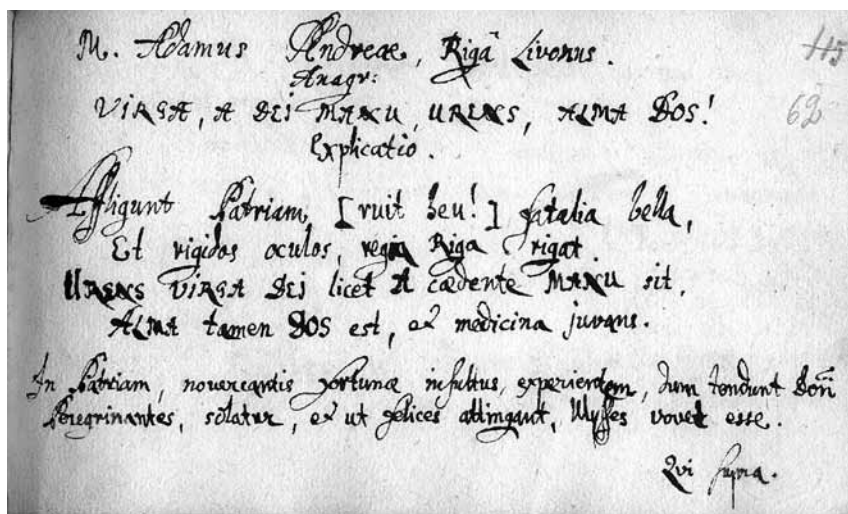 M. Adamus Andreae, Rigâ Livonus.
115
Anagr:
VIRGÆ, A DEI MANU, URENS, ALMA DOS!
62
Explicatio.
Affligunt Patriam, [ruit heu!] fatalia bella,
Et rigidos oculos, regia Riga rigat.
URENS VIRGA DEI licet A cædente MANU sit,
ALMA tamen DOS est, et medicina juvans.
In Patriam, novercantis fortunæ insultus, experientem, dum tendunt
Peregrinantes, solatur, et ut felices attingant, Ulysses vovet esse.
Qvi supra.